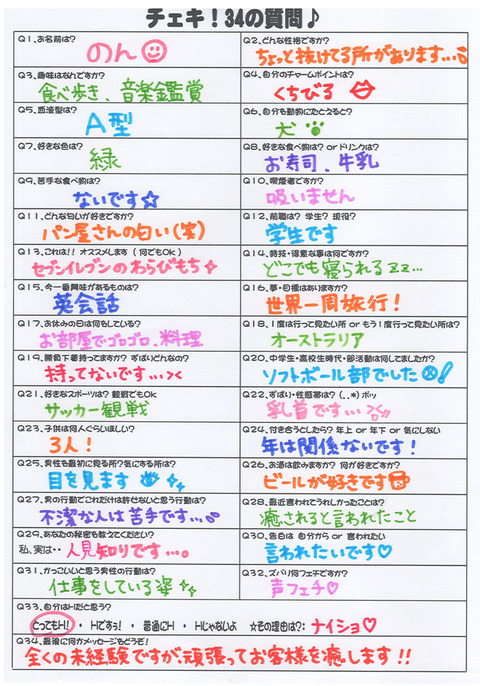 チェキ！34の質問♪
Q1、お名前は？
のん
Q2、どんな性格ですか？
ちょっと抜けてる所があります…
Q3、趣味はなんですか？
食べ歩き、音楽鑑賞
Q4、自分のチャームポイントは？
くちびる
Q5、血液型は？
A型
Q6、自分を動物にたとえると？
犬
Q7、好きな色は？
緑
Q8、好きな食べ物は？ or ドリンクは？
お寿司、牛乳
Q9、苦手な食べ物は？
ないです☆
Q10、喫煙者ですか？
吸いません
Q11、どんな匂いが好きですか？
パン屋さんの匂い(笑)
Q12、前職は？ 学生？ 現役？
学生です
Q13、これは!! オススメします (何でもOk)
セブンイレブンのわらびもち☆
Q14、特技・得意な事は何ですか？
どこでも寝られるzz…
Q15、今一番興味があるものは？
英会話
Q16、夢・目標はありますか？
世界一周旅行！
Q17、お休みの日は何をしている？
お部屋でゴロゴロ、料理
Q18、1度は行って見たい所 or もう1度行って見たい所は？
オーストラリア
Q19、勝負下着持ってますか？ ずばりどんなの？
持ってないです…><
Q20、中学生・高校生時代・部活動は何してましたか？
ソフトボール部でした！
Q21、好きなスポーツは？ 観戦でもOK
サッカー観戦
Q22、ずばい・性感帯は？ (..*)ポッ
乳首です…
Q23、子供は何人ぐらいほしい？
3人！
Q24、付き合うとしたら？ 年上 or 年下 or 気にしない
年は関係ないです！
Q25、男性を最初に見る所？気にする所は？
目を見ます
Q26、お酒は飲みますか？ 何が好きですか？
ビールが好きです
Q27、男の行動でこれだけは許せないと思う行動は？
不潔な人は苦手です…
Q28、最近言われてうれしかったことは？
癒されると言われたこと
Q29、あなたの秘密を教えてください？
私、実は・・人見知りです…。
Q30、告白は 自分から or 言われたい
言われたいです♡
Q31、かっこいいと思う男性の行動は？
仕事をしている姿
Q32、ズバリ何フェチですか？
声フェチ♡
Q33、自分はHだと思う？
とってもH！ ・ Hですぅ！ ・ 普通にH ・ Hじゃないよ ☆その理由は？：ナイショ♡
Q34、最後に何かメッセージをどうぞ！
全くの未経験ですが、頑張ってお客様を癒します!!